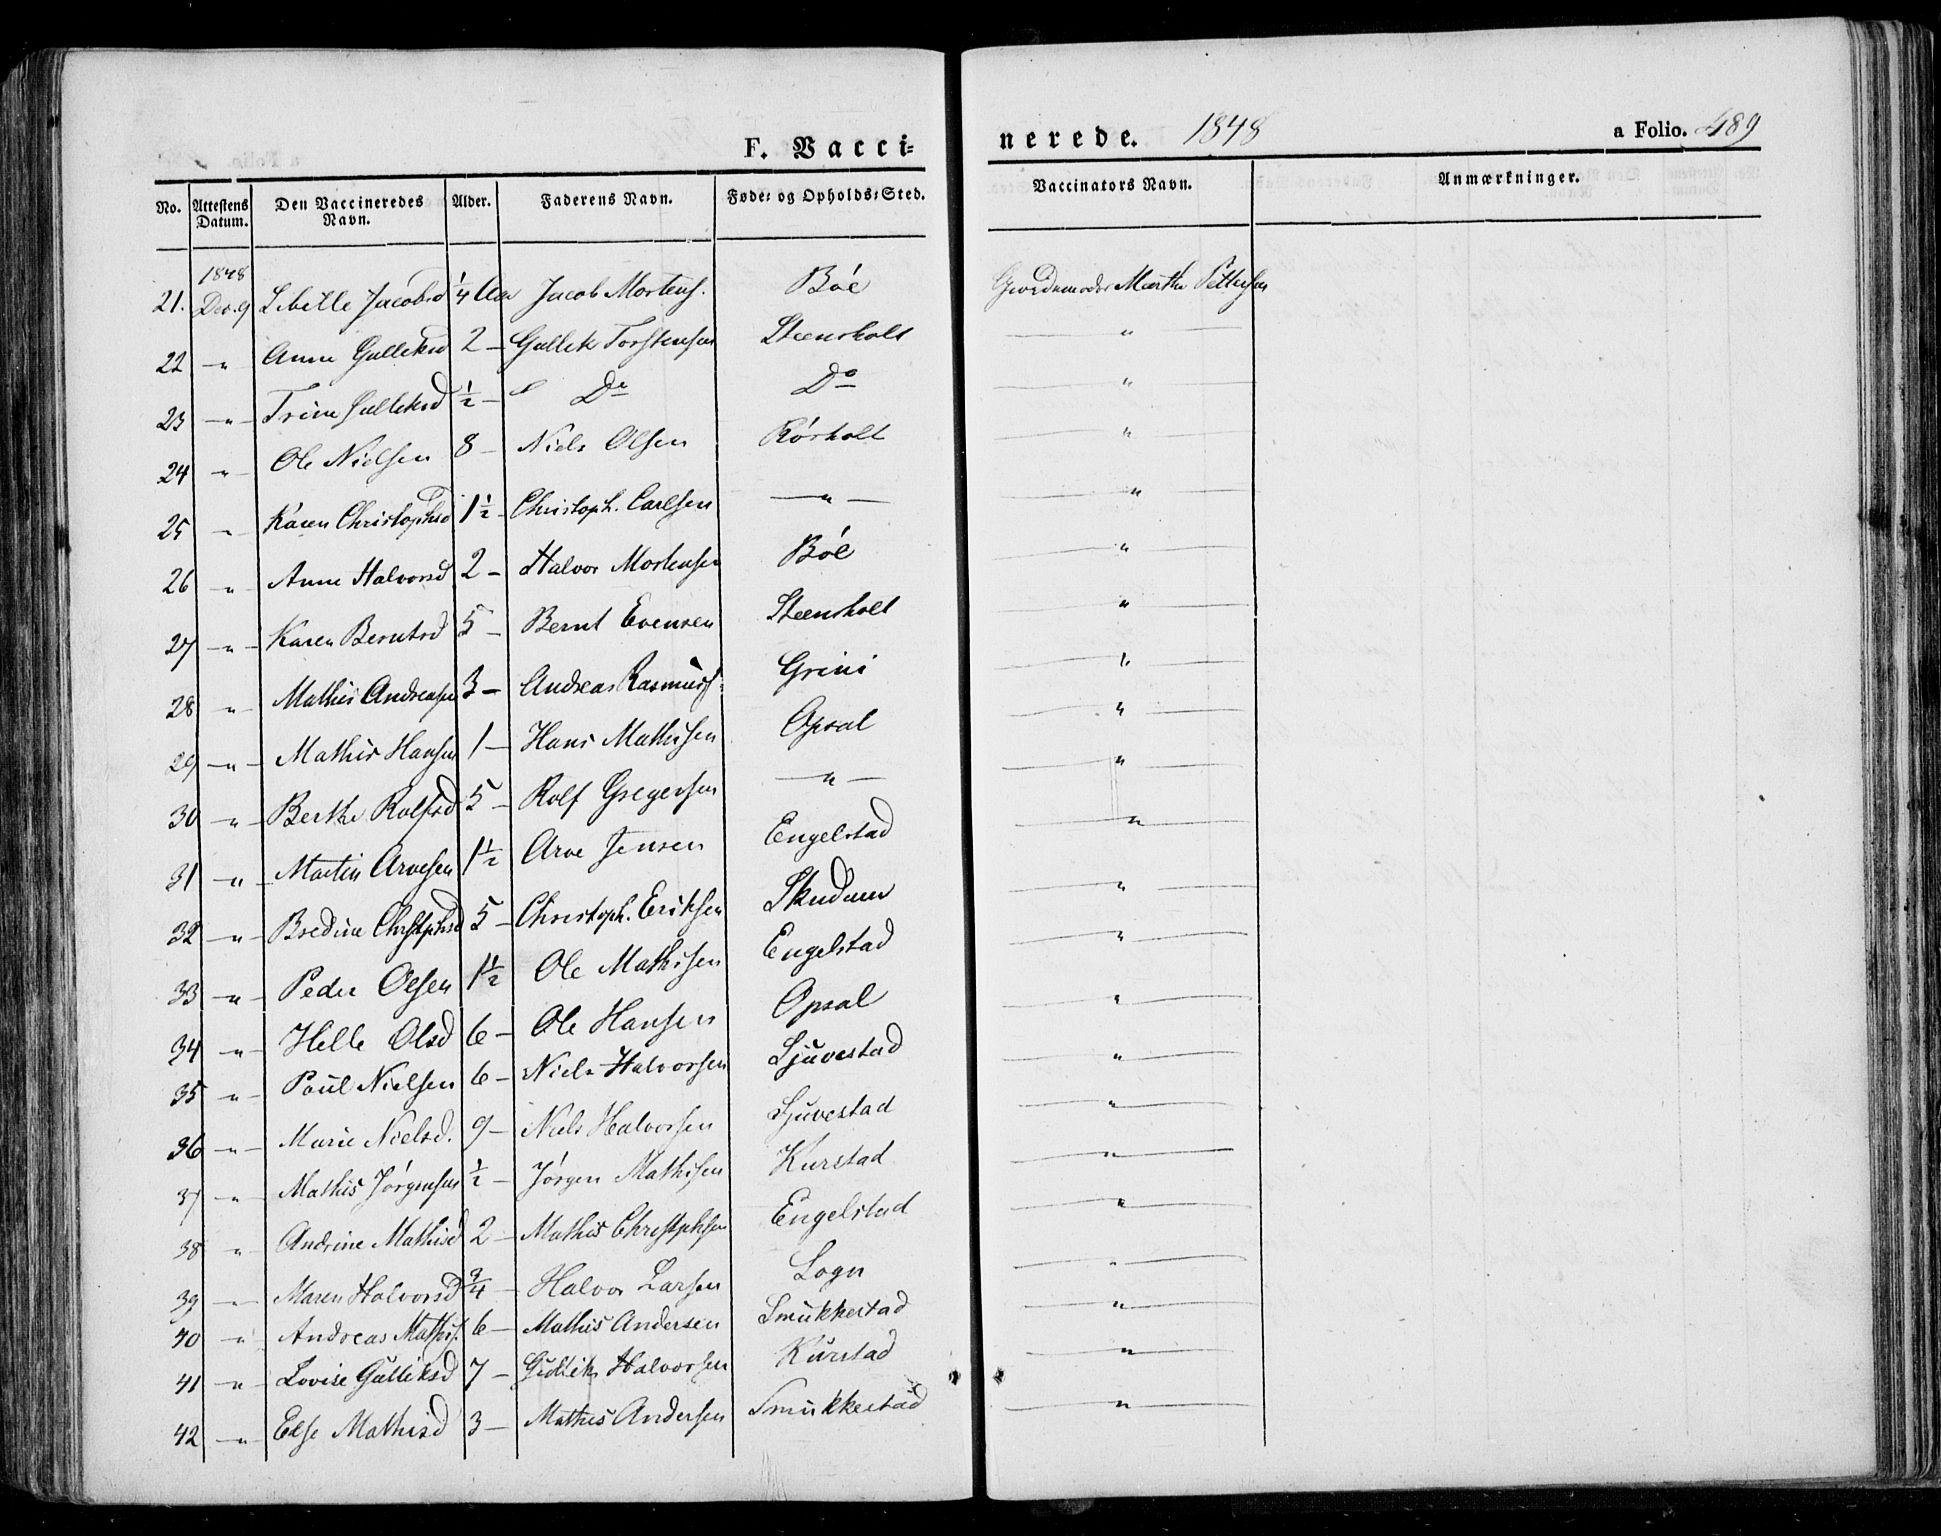 F. Vaccinerede. 1848 a Folio. 489
No. Attestens Datum. Den Vaccineredes Navn. Alder. Faderens Navn. Føde- og Opholds-Sted. Vaccinators Navn. Anmærkninger.
1848
21. Dec. 9 Sibille Jacobsd ¼ Aar Jacob Mortens. Bóe Giordemoder Marthe Pettersen
22 " Anne Gulleksd 2 – Gullek Torstensen Steensholt "
23 " Trine Gulleksd ½ – Do Do "
24 " Ole Nielsen 8 – Niels Olsen Rórholt "
25 " Karen Christophsd 1½ – Christoph. Carlsen " "
26 " Anne Halvorsd 2 – Halvor Mortensen Bóe "
27 " Karen Berntsd 5 – Bernt Evensen Steensholt "
28 " Mathis Andreasen 3 – Andreas Rasmus. Grini "
29 " Mathis Hansen 1 – Hans Mathisen Opsal "
30 " Berthe Rolfsd 5 – Rolf Gregersen " "
31 " Martin Arvesen 1½ Arve Jensen Engelstad "
32 " Bredine Christphsd 5 – Christoph. Eriksen "
33 " Peder Olsen 1½ Ole Mathisen Engelstad "
34 " Helle Olsd 6 – Ole Hansen Opsal "
35 " Poul Nielsen 6 – Niels Halvorsen Ljuvestad "
36 " Marie Nielsd. 9 – Niels Halvorsen Ljuvestad "
37 " Mathis Jórgensen ½ – Jórgen Mathisen Kurstad "
38 " Andrine Mathisd 2 – Mathis Christphsen Engelstad "
39 " Maren Halvorsd ¾ – Halvor Larsen Logn "
40 " Andreas Mathis. 6 – Mathis Andersen Smukkestad "
41 " Lovise Gulliksd 7 – Gullik Halvorsen Kurstad "
42 " Else Mathisd 3 – Mathis Andersen Smukkestad "